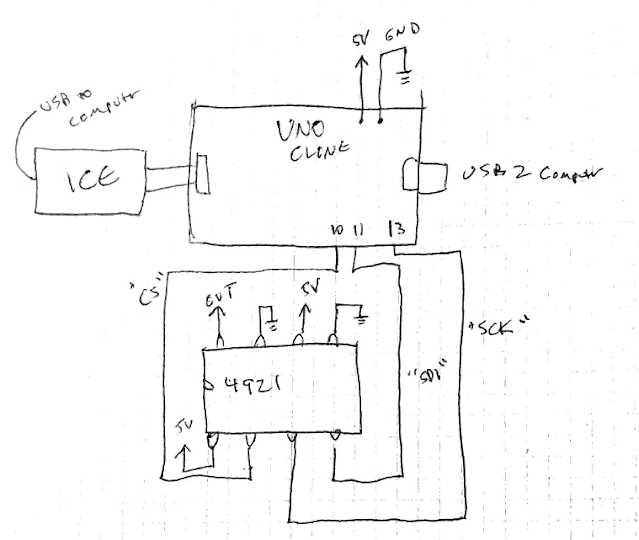 5V GND
USB to
computer
UNO
CLONE
ICE
USB 2 Computer
10 11 13
"CS"
OUT
5V
"SCK"
4921
"SDI"
5V